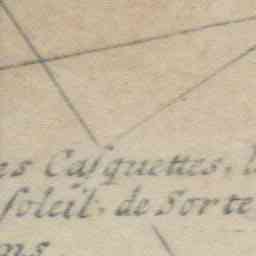 es Casquettes, l
soleil, de Sorte
ms